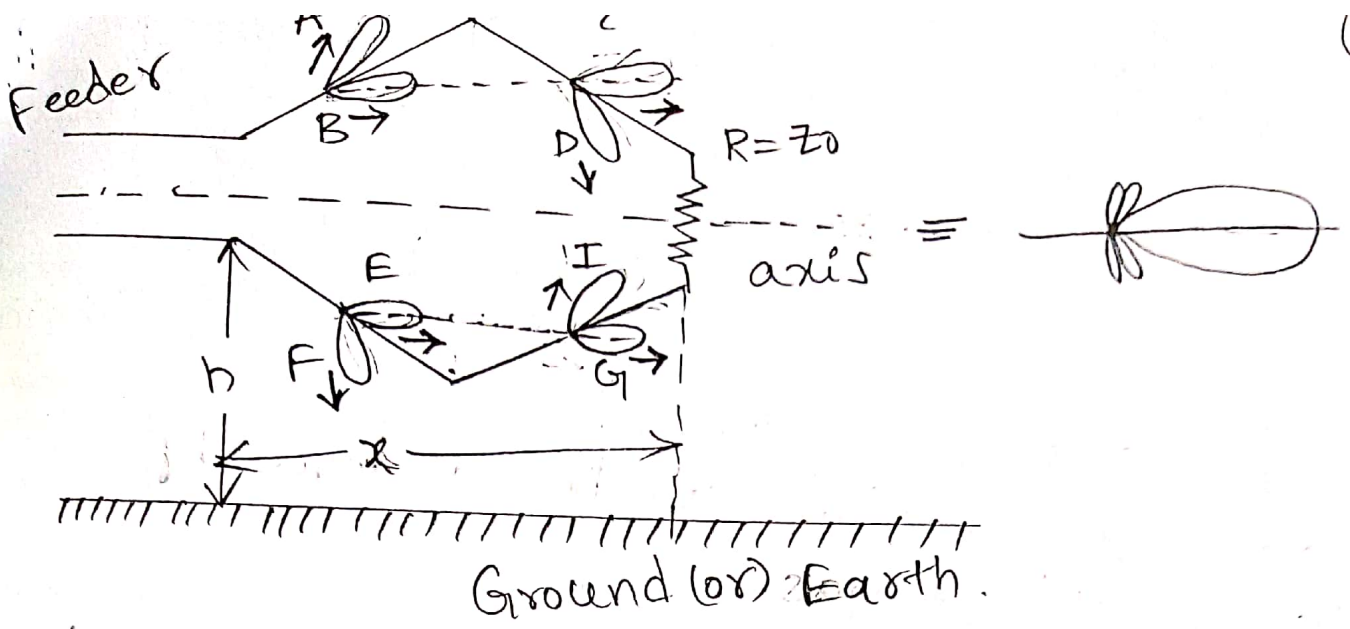 A
C
Feeder
B
D
R = Z0
axis
≡
E
I
F
G
h
x
Ground (or) Earth.